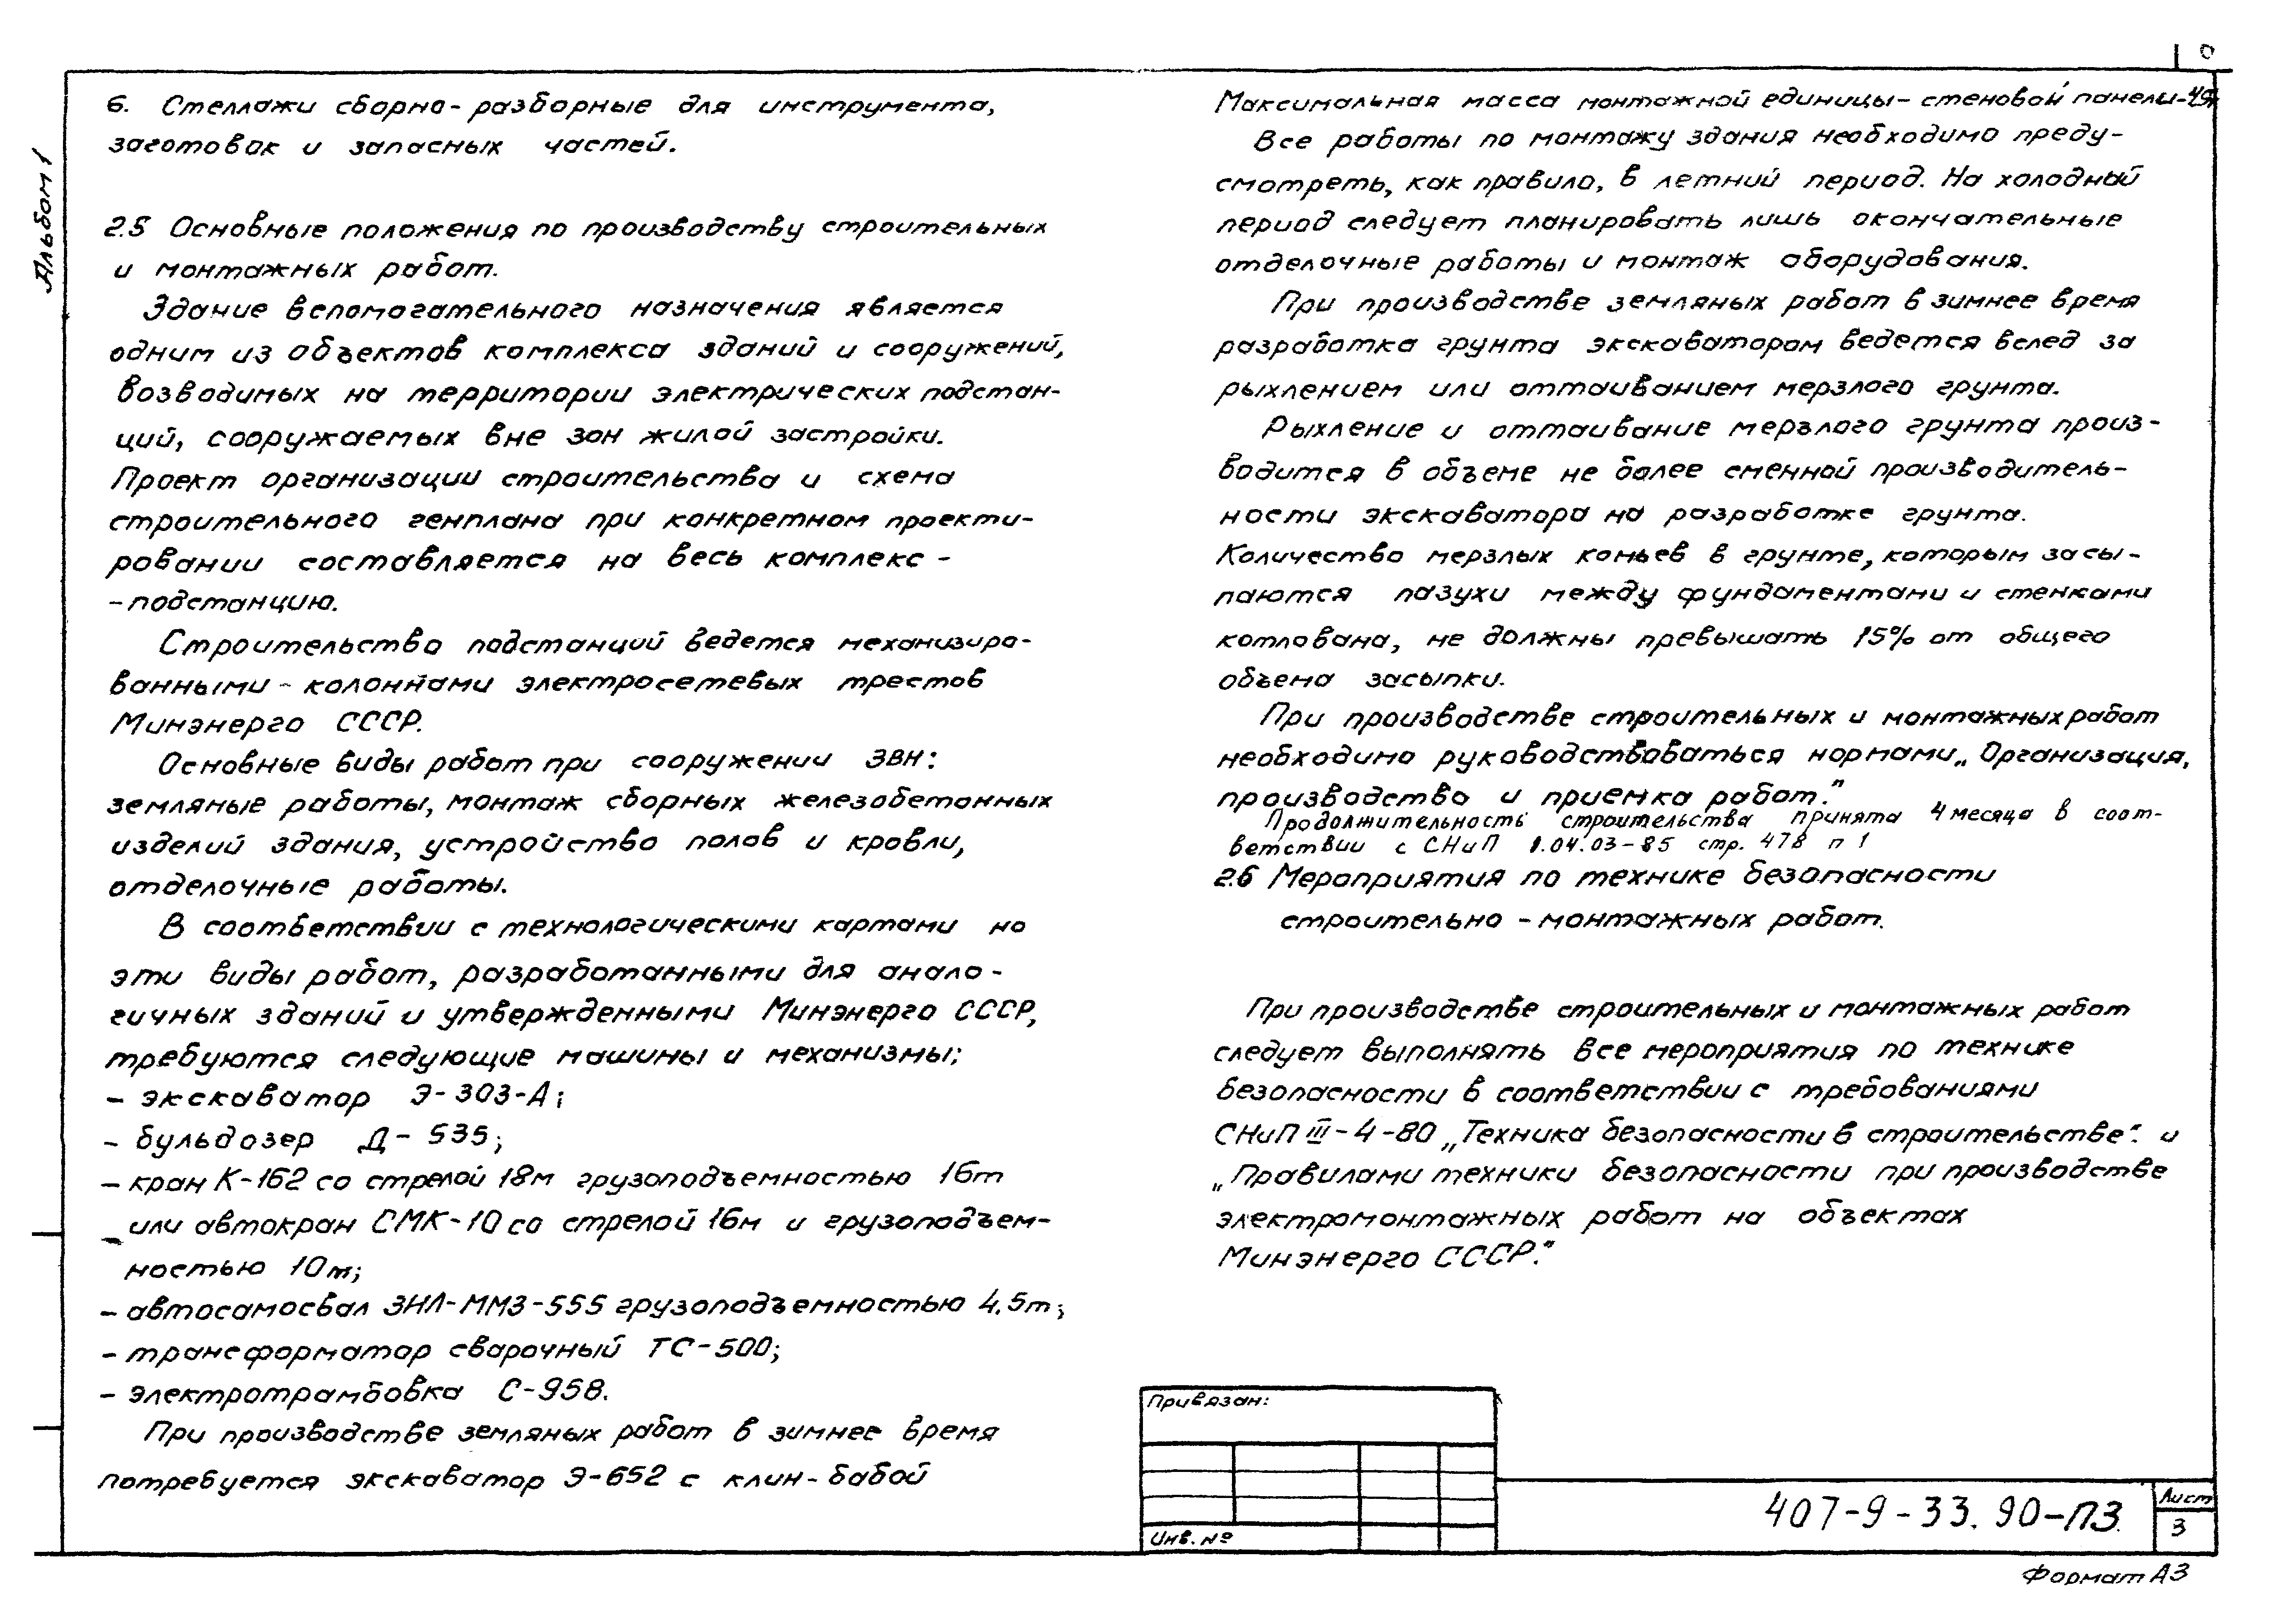 Альбом 1
6. Стеллажи сборно-разборные для инструмента,
заготовок и запасных частей.
2.5 Основные положения по производству строительных
и монтажных работ.
Здание вспомогательного назначения является
одним из объектов комплекса зданий и сооружений,
возводимых на территории электрических подстан-
ций, сооружаемых вне зон жилой застройки.
Проект организации строительства и схема
строительного генплана при конкретном проекти-
ровании составляется на весь комплекс -
-подстанцию.
Строительство подстанций ведется механизиро-
ванными - колоннами электросетевых трестов
Минэнерго СССР.
Основные виды работ при сооружении ЗВН:
земляные работы, монтаж сборных железобетонных
изделий здания, устройство полов и кровли,
отделочные работы.
В соответствии с технологическими картами на
эти виды работ, разработанными для анало-
гичных зданий и утвержденными Минэнерго СССР,
требуются следующие машины и механизмы:
- экскаватор Э-303-А;
- бульдозер Д-535;
- кран К-162 со стрелой 18м грузоподъемностью 16т
- или автокран СМК-10 со стрелой 16м и грузоподъем-
ностью 10т;
- автосамосвал ЗИЛ-ММЗ-555 грузоподъемностью 4.5т;
- трансформатор сварочный ТС-500;
- электротрамбовка С-958.
При производстве земляных работ в зимнее время
потребуется экскаватор Э-652 с клин-бабой
Максимальная масса монтажной единицы-стеновой панели-
Все работы по монтажу здания необходимо преду-
смотреть, как правило, в летний период. На холодный
период следует планировать лишь окончательные
отделочные работы и монтаж оборудования.
При производстве земляных работ в зимнее время
разработка грунта экскаватором ведется вслед за
рыхлением или оттаиванием мерзлого грунта.
Рыхление и оттаивание мерзлого грунта произ-
водится в объеме не более сменной производитель-
ности экскаватора на разработке грунта.
Количество мерзлых комьев в грунте, которым засы-
паются пазухи между фундаментами и стенками
котлована, не должны превышать 15% от общего
объема засыпки.
При производстве строительных и монтажных работ
необходимо руководствоваться нормами „Организация,
производство и приемка работ."
Продолжительность строительства принята 4 месяца в соот-
ветствии с СНиП 1.04.03-85 стр. 478 п 1
2.6 Мероприятия по технике безопасности
строительно-монтажных работ.
При производстве строительных и монтажных работ
следует выполнять все мероприятия по технике
безопасности в соответствии с требованиями
СНиП III-4-80 „Техника безопасности в строительстве". и
„Правилами техники безопасности при производстве
электромонтажных работ на объектах
Минэнерго СССР."
Привязан:
Инв. №
407-9-33.90-ПЗ
Лист
3
Формат А3